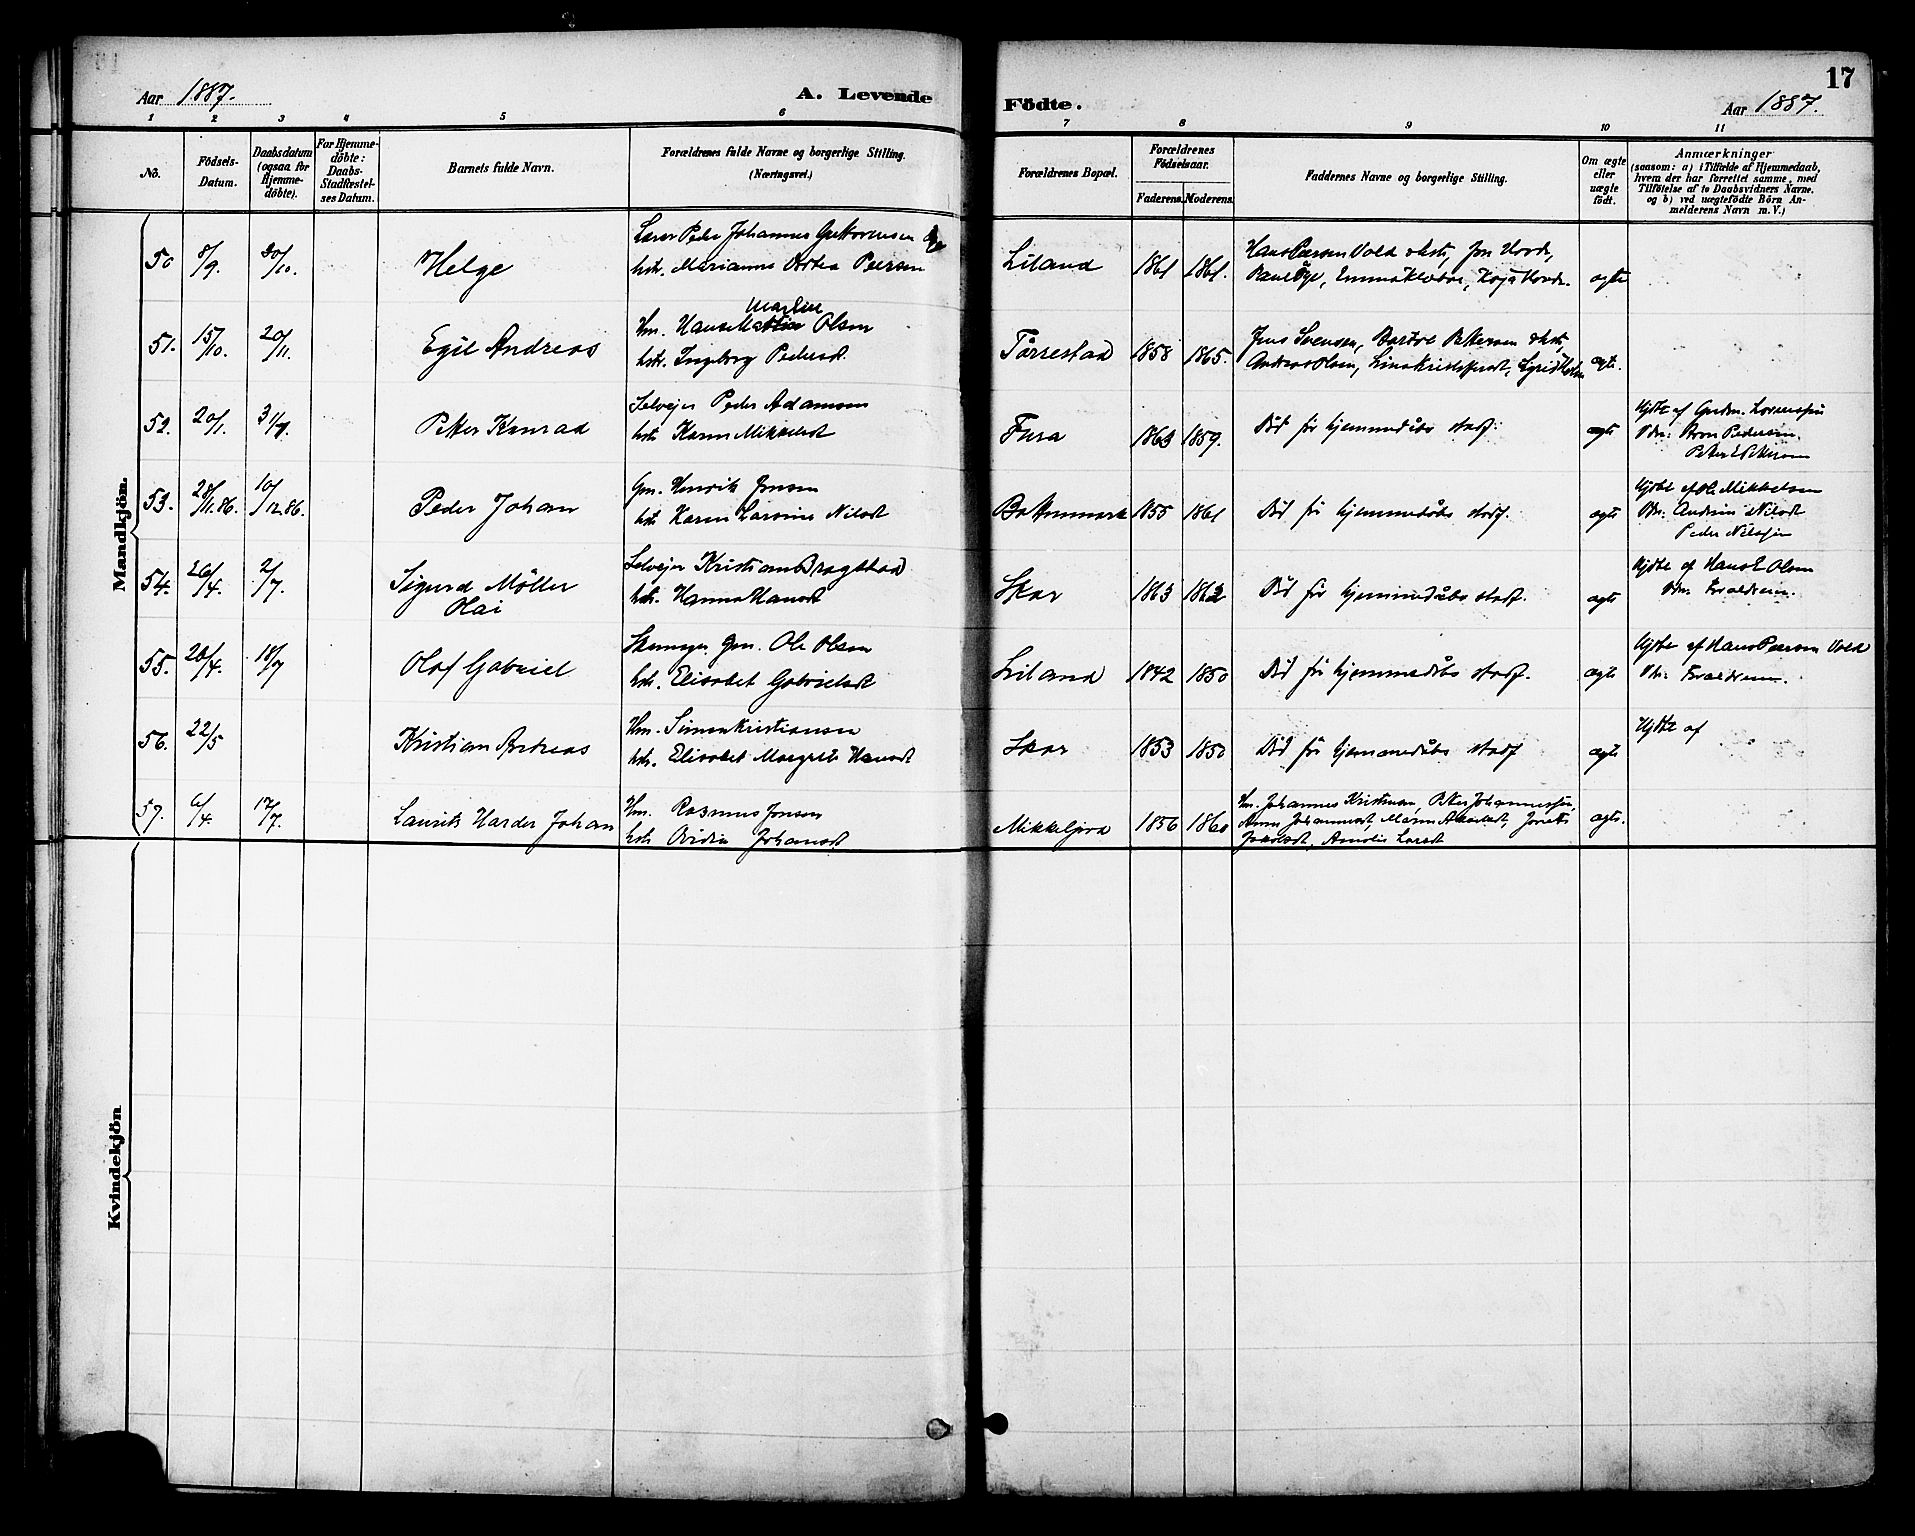 Aar 1887.
A. Levende
Födte.
17
Aar 1887.
1 2 3 4 5 6 7 8 9 10 11
No.
Födsels-
Datum.
Daabsdatum
(ogsaa for
Hjemme-
döbte).
For Hjemme-
döbte:
Daabs-
Stadfæstel-
ses Datum.
Barnets fulde Navn.
Forældrenes fulde Navne og borgerlige Stilling.
(Næringsvei.)
Forældrenes Bopæl.
Forældrenes
Födselsaar.
Faderens. Moderens.
Faddernes Navne og borgerlige Stilling.
Om ægte
eller
uægte
födt.
Anmærkninger
(saasom: a) i Tilfælde af Hjemmedaab,
hvem der har forrettet samme, med
Tilföielse af to Daabsvidners Navne.
og b) ved uægtefödte Börn An-
melderens Navn m. V.)
Mandkjön.
50 8/9. 30/10. Helge
Lærer Peder Johannes
hstr. Marianna Dortea Peersen
Liland 1861 1861.
Hans Peersen Vold
Emma
ægte
51. 15/10. 20/11. Egil Andreas
Martin
Hm. Hans Olsen
hstr. Ingeborg Pedersd.
Tårrestad 1858 1865.
Jens Svensen, Pettersen
Andreas Olsen,
ægte.
52. 20/1. Peter Konrad
Selveier Peder Adamsen
hstr. Karen Mikkelsdt
Fura 1863 1859.
Död för hjemmedåbs stadf.
ægte
Hjdbt af
Vdn: Pedersen.
Peter E Pettersen
53. 28/11.86. 10/12.86. Peder Johan
Gm. Henrik Jensen
hstr. Karen Larsine Nilsdt
Botnmark 1855 1861
Död för hjemmedåbs stadf.
ægte
Hjdbt af Ole Mikkelsen
Vdn: Nilsdt
Peder Nilssen
54. 26/4. 2/7. Sigurd Möller
Olai
Selveier Kristian Dragstad
hstr. Hanna Hansdt
Skar 1863 1862
Död för hjemmedåbs stadf.
ægte
Hjdbt af Hans E Olsen
Vdn. Forældrene.
55. 26/4. 18/7 Olaf Gabriel
Skomager Gm. Ole Olsen
hstr. Elisabet Gabrielsdt
Liland 1842 1850
Död för hjemmedåbs stadf.
ægte
Hjdbt af Hans Peersen Vold
Vdn: Forældrene.
56. 22/5 Kristian Andreas
Hm. Simon Kristiansen
hstr. Elisabet Margrete Hansdt
Skar 1853 1850
Död för hjemmedåbs stadf
ægte
Hjdbt af
57. 6/4. 17/7. Laurits Harder Johan
Hm. Rasmus Jensen
hstr Johansdt
Mikkeljord 1856 1860
Hm. Johannes Kristiansen, Peter Johannessen,
Anna Johannesdt,
Jakobsdt, Amalie Larsdt
ægte.
Kvindekjön